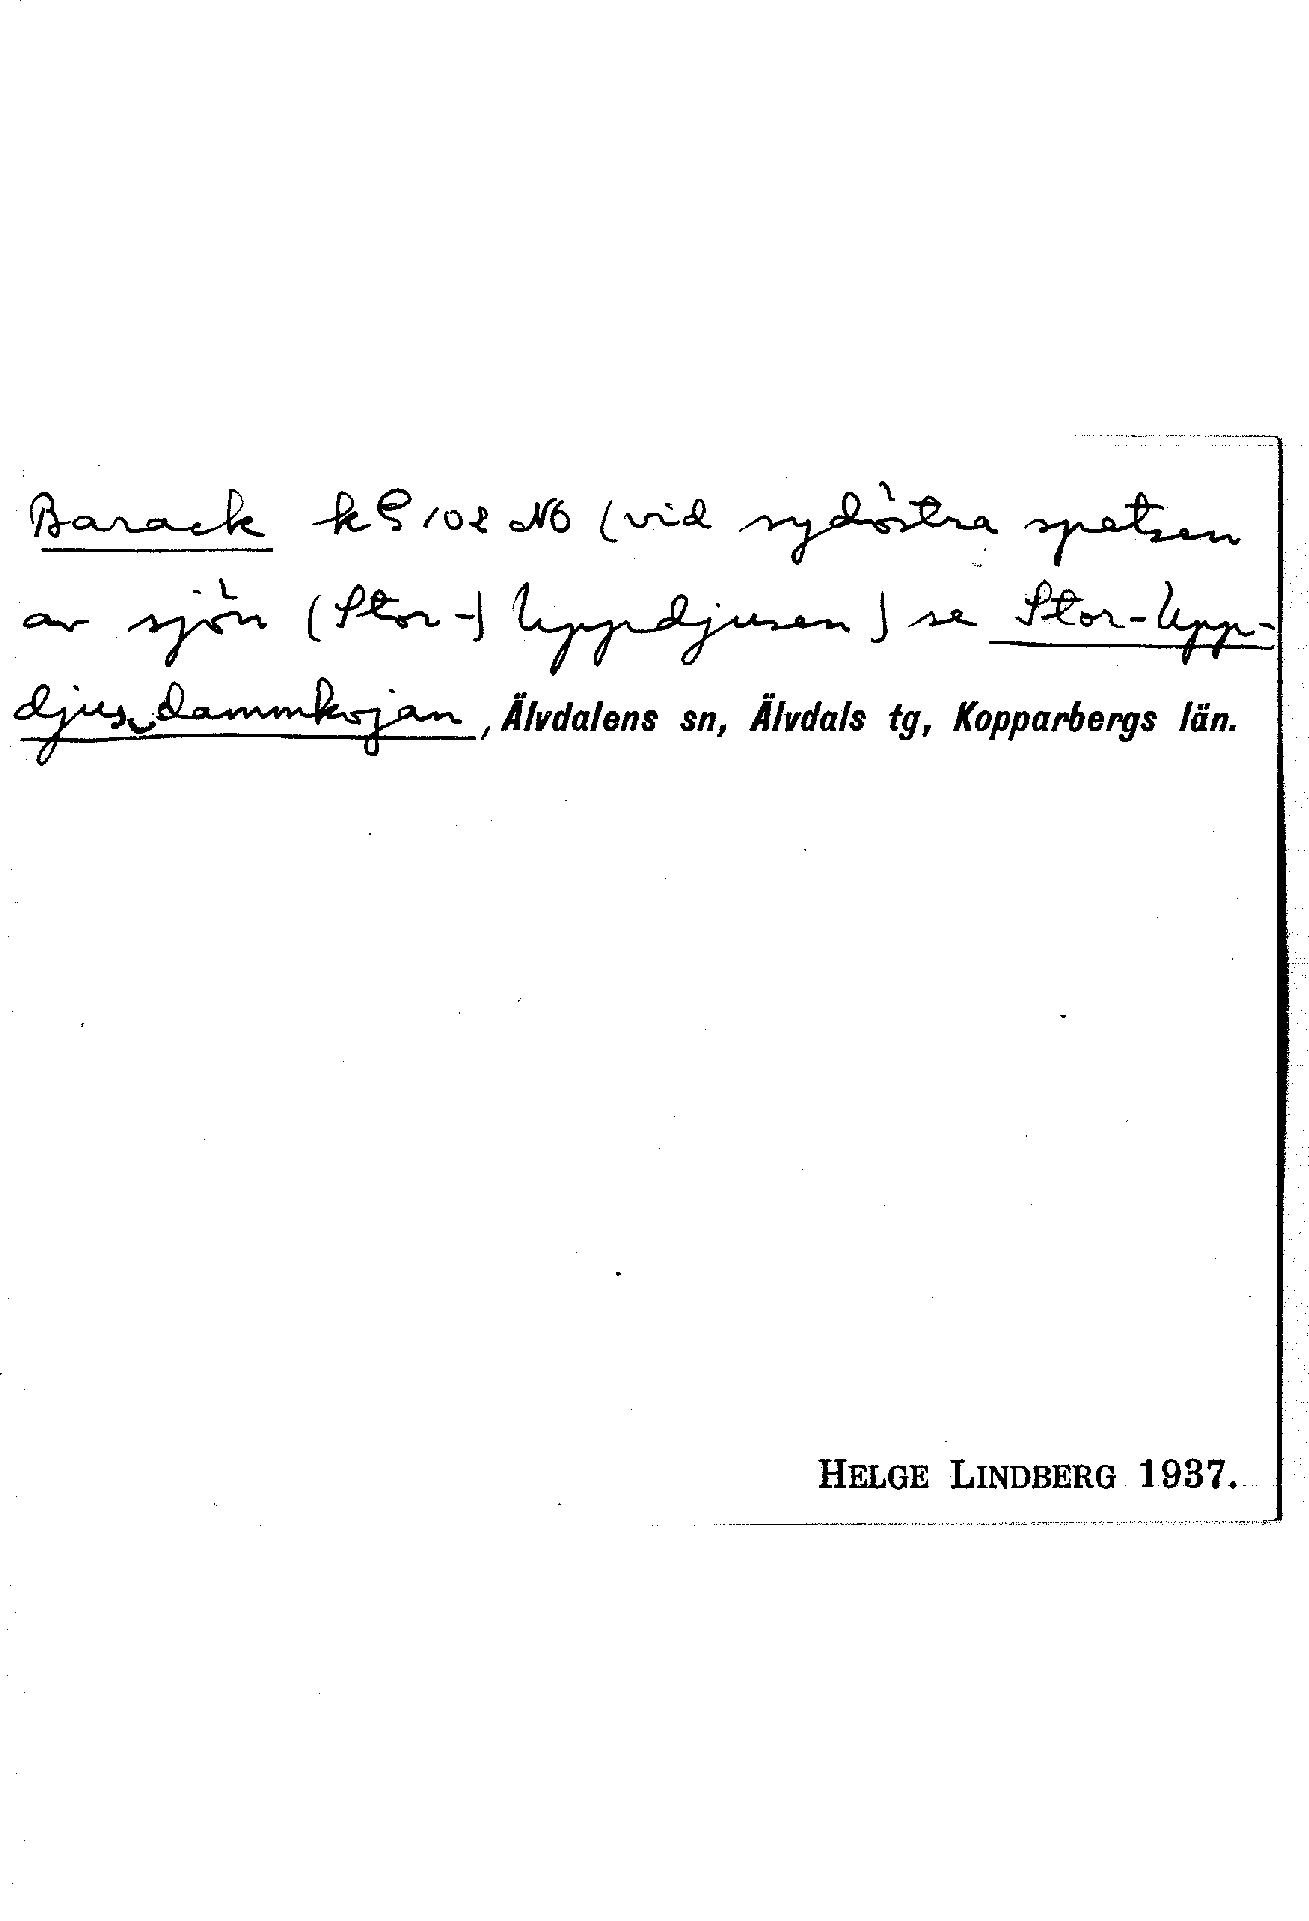 Barack kG 102 NO (vid sydöstra spetsen
av sjön (Stor-) Uppdjusen) se Stor-Upp-
djusdammkojan, Älvdalens sn, Älvdals tg, Kopparbergs län.
HELGE LINDBERG 1937.